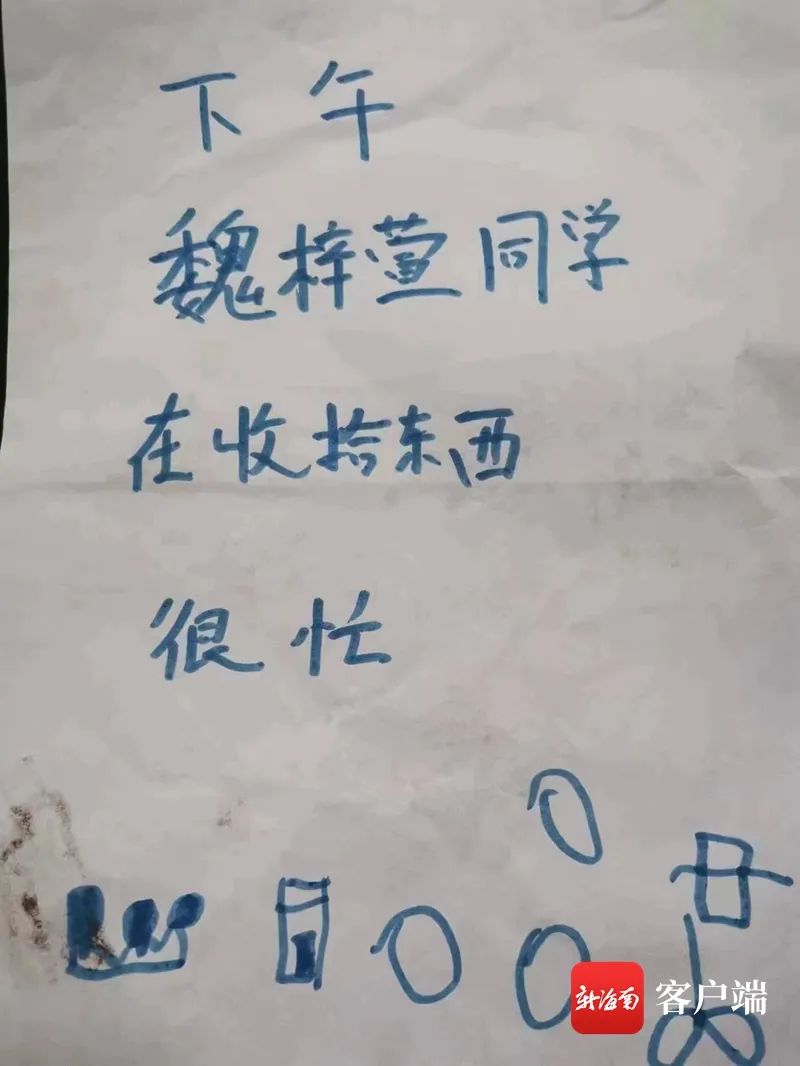 下午
魏梓萱同学
在收拾东西
很忙
新海南 客户端